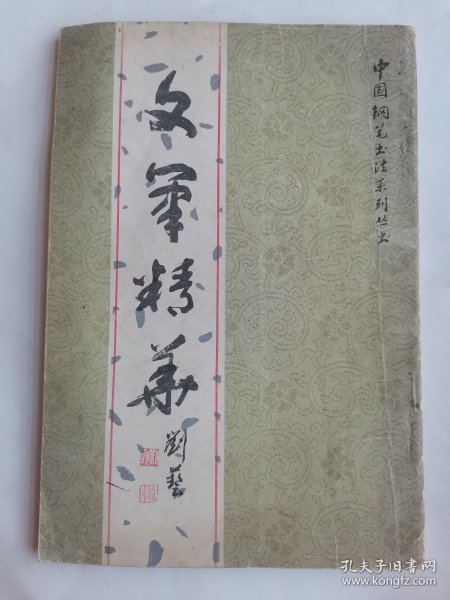 中国钢笔书法系列丛书
文笔精华
劉藝
孔夫子旧书网
www.kongfz.com